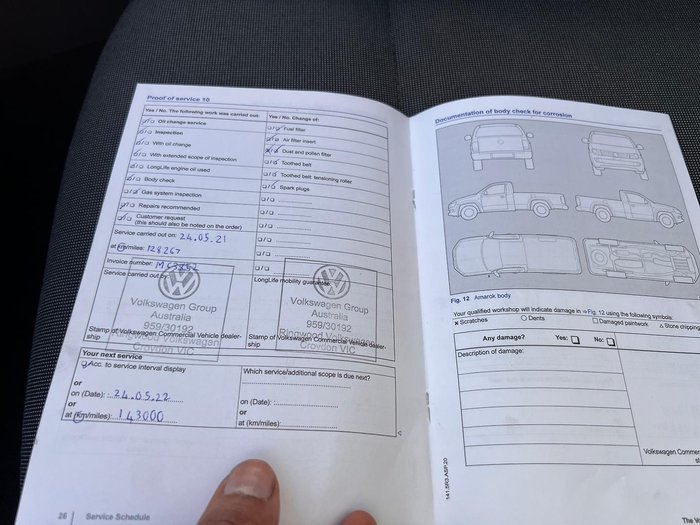 Proof of service 10
Yes / No. The following work was carried out:
Oil change service
Inspection
With oil change
With extended scope of inspection
LongLife engine oil used
Body check
Gas system inspection
Repairs recommended
Customer request
(this should also be noted on the order)
Service carried out on: 24.05.21
at km/miles: 128267
Invoice number:
Service carried out by
Volkswagen Group
Australia
959/30192
Ringwood Volkswagen
Croydon VIC
Stamp of Volkswagen Commercial Vehicle dealer-
ship
Yes / No. Change of:
Fuel filter
Air filter insert
Dust and pollen filter
Toothed belt
Toothed belt; tensioning roller
Spark plugs
LongLife mobility guarantee
Volkswagen Group
Australia
959/30192
Ringwood Volkswagen
Croydon VIC
Stamp of Volkswagen Commercial Vehicle dealer-
ship
Your next service
Acc. to service interval display
or
on (Date): 24.05.22
or
at (km/miles): 143000
Which service/additional scope is due next?
on (Date):
or
at (km/miles):
26 Service Schedule
Documentation of body check for corrosion
Fig. 12 Amarok body
Your qualified workshop will indicate damage in ⇒Fig. 12 using the following symbols:
× Scratches ○ Dents □ Damaged paintwork △ Stone chipping
Any damage? Yes: □ No: □
Description of damage:
Volkswagen Commer
141.5R3.ASP.20
The V